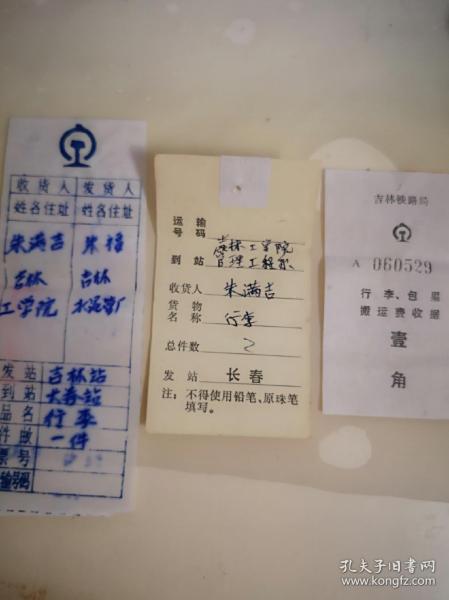 收货人 发货人
姓名住址 姓名住址
朱满吉 朱
吉林 吉林
工学院 水泥
发站 吉林站
到站 长春站
品名 行李
件数 一件
票号
运输
号码
吉林工学院
到站 管理工程系
收货人 朱满吉
货物
名称 行李
总件数 2
发站 长春
注：不得使用铅笔、原珠笔
填写。
吉林铁路局
A 060529
行李、包裹
搬运费收据
壹
角
孔夫子旧书网
www.kongfz.com